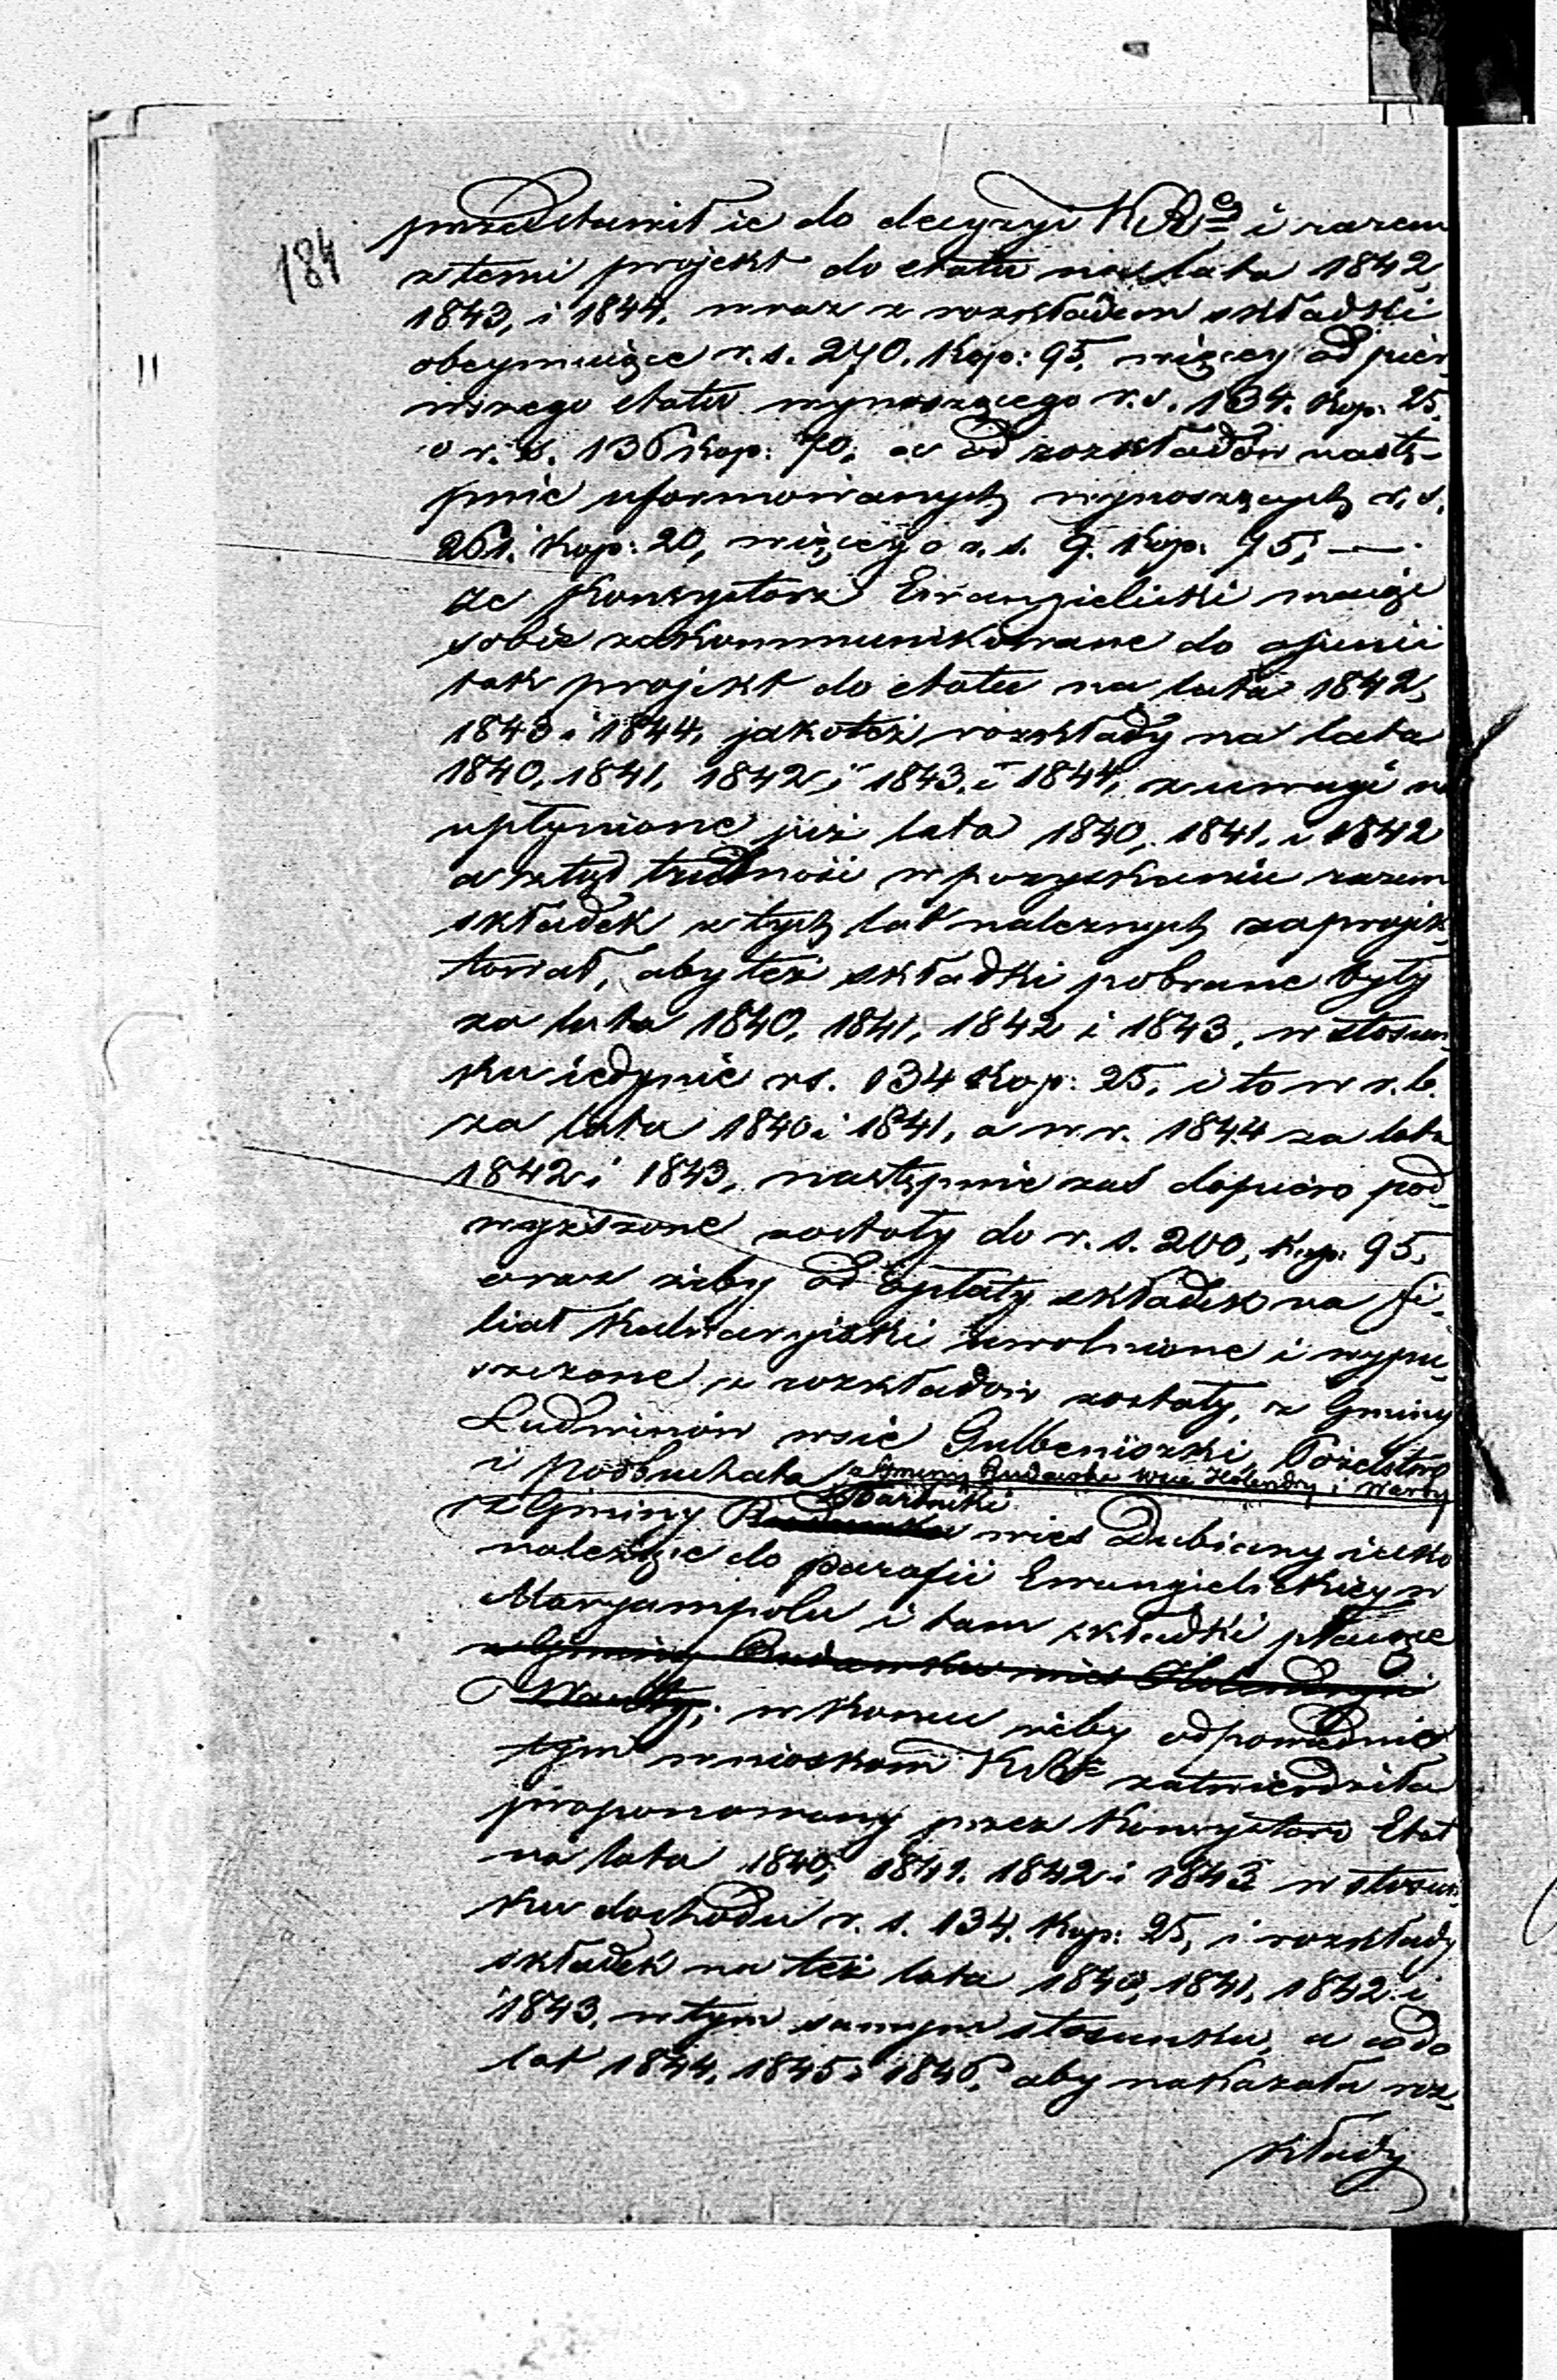 184
przedstawił ie do decyzyi KRz i razem
z temi projekt do etatu na lata 1842,
1843, i 1844, wraz z rozkładem składki
obeymuiące r. s. 270. Kop: 95, więcey od pier-
wszego etatu wynoszącego r. s. 134. Kop: 25.
o r. s. 136 Kop: 70, a od rozkładów nastę-
pnie uformowanych wynoszących r. s.
261. Kop: 20, więcey o r. s. 9. Kop: 75, —
11
że Konsystorz Ewangielicki maiąc
sobie zakommunikowane do opinii
tak projekt do etatu na lata 1842,
1843 i 1844, jakoteż rozkłady na lata
1840, 1841, 1842, i 1843. i 1844, z uwagi na
upłynione już lata 1840, 1841, i 1842
a ztąd trudność w pozyskaniu razem
składek z tych lat należnych zaprojek-
tował, aby też składki pobrane były
za lata 1840, 1841, 1842 i 1843, w stosun-
ku iedynie rs. 134 Kop: 25, i to w r. b.
za lata 1840 i 1841, a w r. 1844 za lata
1842 i 1843, następnie zaś dopiero pod-
wyższone zostały do r. s. 200, Kop: 95,
oraz żeby od opłaty składek na fi-
liał Kalwaryiski uwolnione i wypu-
szczone z rozkładów zostały, z Gminy
Ludwinów wsie Gulbeniszki,
i Podbuchata z Gminy Rudawka wsie Holendry i Warty
z Gminy wieś Dubiany iako
należące do parafii Ewangielickiey w
Maryampolu i tam składki płacące
z Gminy Rudawka wieś Holendry i
Warty, w końcu żeby odpowiednio
tym wnioskom zatwierdziła
proponowany przez Konsystorz Etat
na lata 1840, 1841. 1842 i 1843 w stosun-
ku dochodu r. s. 134. Kop: 25, i rozkłady
składek na też lata 1840, 1841, 1842 i
1843, w tym samym stosunku, a co do
lat 1844, 1845 i 1846, aby nakazała roz-
kłady